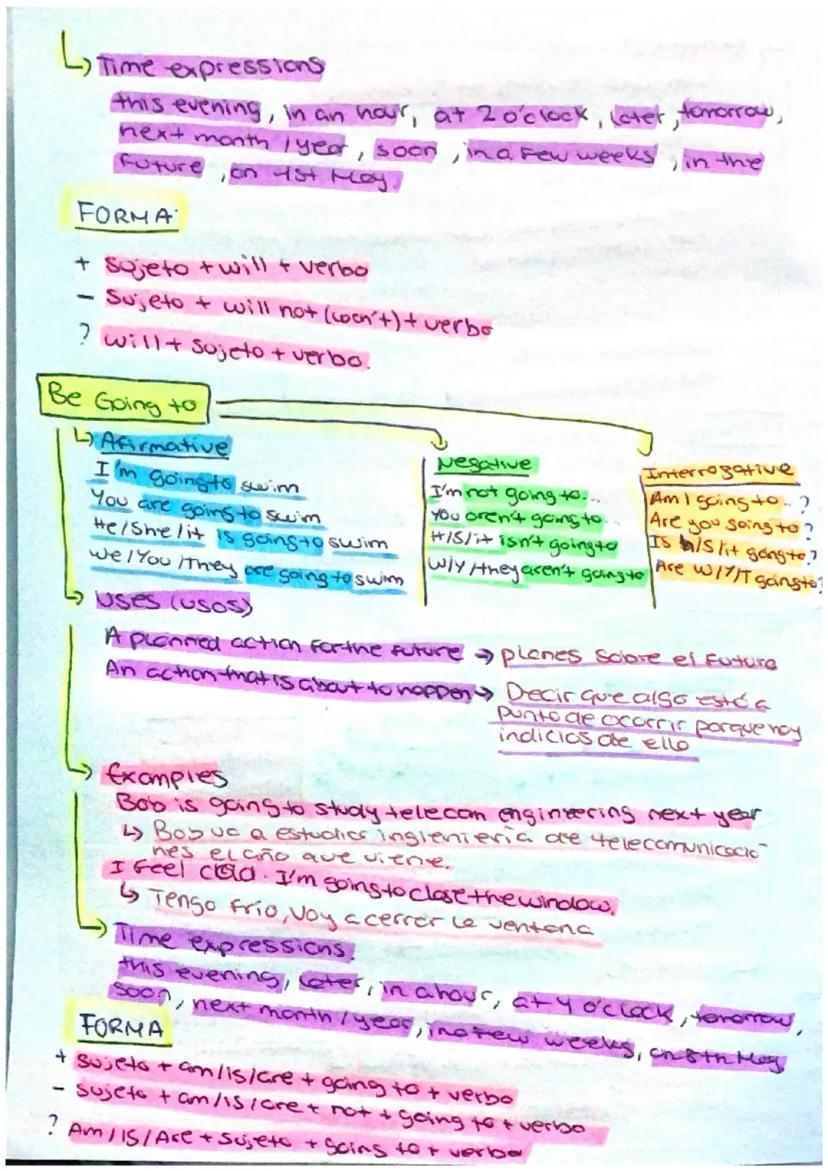 Time expressions
this evening, in an hour, at 2 o'clock, later, tomorrow,
next month / year, soon, in a few weeks, in the
future, on 1st May.
FORMA
+ Sujeto + will + verbo
- Sujeto + will not (won't) + verbo
? will + sujeto + verbo.
Be Going to
Afirmative
I'm going to swim
You are going to swim
He/She/it is going to swim
We/You/They are going to swim
Negative
I'm not going to...
You aren't going to...
H/S/it isn't going to
W/Y/they aren't going to
Interrogative
Am I going to...?
Are you going to?
Is h/S/it going to?
Are W/Y/T going to?
USES (USOS)
A planned action for the future → planes sobre el futuro
An action that is about to happen → Decir que algo está a
punto de ocurrir porque hay
indicios de ello
Examples
Bob is going to study telecom engineering next year
↳ Bob va a estudiar ingieniería de telecomunicacio
nes el año que viene.
I feel cold. I'm going to close the window.
↳ Tengo frío, voy a cerrar la ventana
Time expressions.
this evening, later, in a hour, at 4 o'clock, tomorrow,
soon, next month / year, in a few weeks, on 8th May
FORMA
+ sujeto + am/is/are + going to + verbo
- sujeto + am/is/are + not + going to + verbo
? Am/is/Are + sujeto + going to + verbo